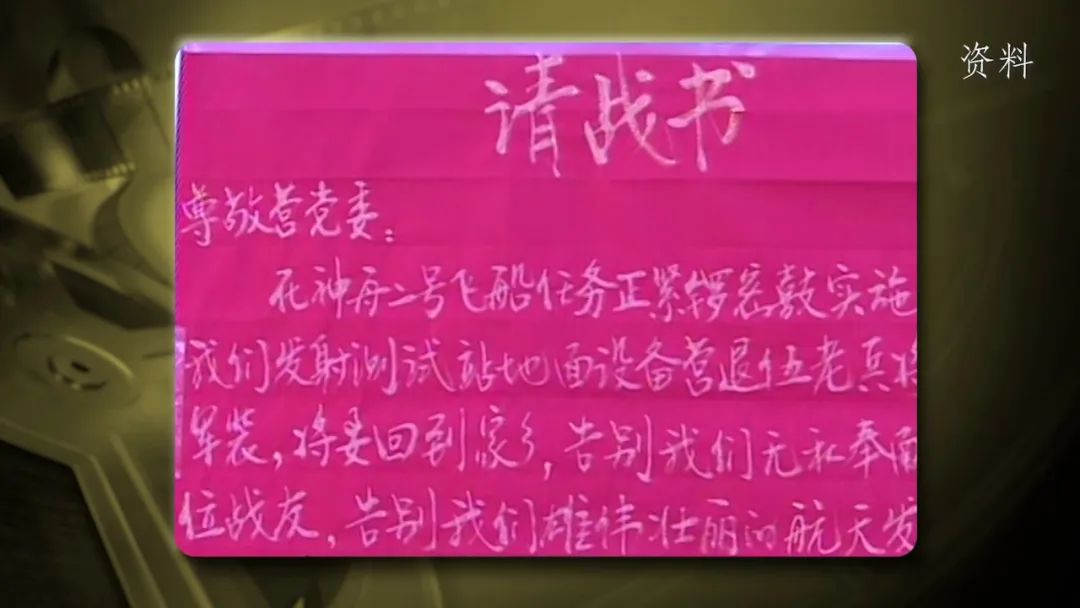 资料
请战书
尊敬营党委：
在神舟二号飞船任务正紧锣密鼓实施
我们发射测试站地面设备营退伍老兵将
军装，将要回到家乡，告别我们无私奉
位战友，告别我们雄伟壮丽的航天发